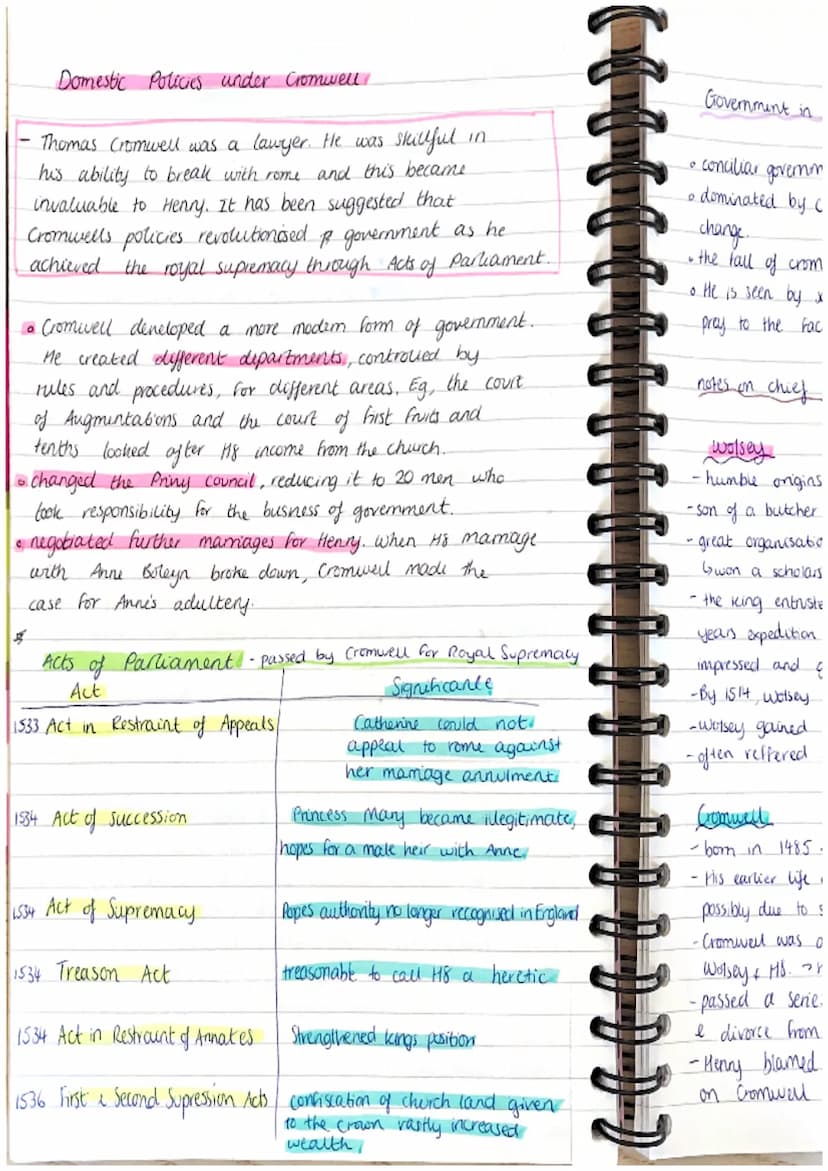 Domestic Policies under Cromwell
- Thomas Cromwell was a lawyer. He was skillful in
his ability to break with rome and this became
invaluable to Henry. It has been suggested that
Cromwells policies revolutionised government as he
achieved the royal supremacy through Acts of Parliament.
Cromwell developed a more modern form of government.
He created different departments, controlled by
rules and procedures, for different areas. Eg, the court
of Augmentations and the court of First Fruits and
tenths looked after H8 income from the church.
changed the Privy council, reducing it to 20 men who
took responsibility for the busness of government.
negotiated further marriages for Henry. When H8 marriage
with Anne Boleyn broke down, Cromwell made the
case for Anne's adultery.
Acts of Parliament - passed by Cromwell for Royal Supremacy
Act Significance
1533 Act in Restraint of Appeals Catherine could not
appeal to rome against
her marriage annulment
1534 Act of succession Princess Mary became illegitimate,
hopes for a male heir with Anne.
1534 Act of Supremacy Popes authority no longer recognised in England
1534 Treason Act treasonable to call H8 a heretic
1534 Act in Restraint of Annates Strengthened kings position
1536 First & Second Supression Acts confiscation of church land given
to the crown vastly increased
wealth
Government in
conciliar governm
dominated by c
change.
the fall of crom
He is seen by
prey to the fac
notes on chief
Wolsey
- humble origins
- son of a butcher
- great organisatio
↳ won a scholars
- the king entruste
years expedition
impressed and
- By 1514, Wolsey
- Wolsey gained
- often reffered
Cromwell
- born in 1485
- His earlier life
possibly due to s
- Cromwell was a
Wolsey & H8. →
- passed a serie
& divorce from
- Henry blamed
on Cromwell